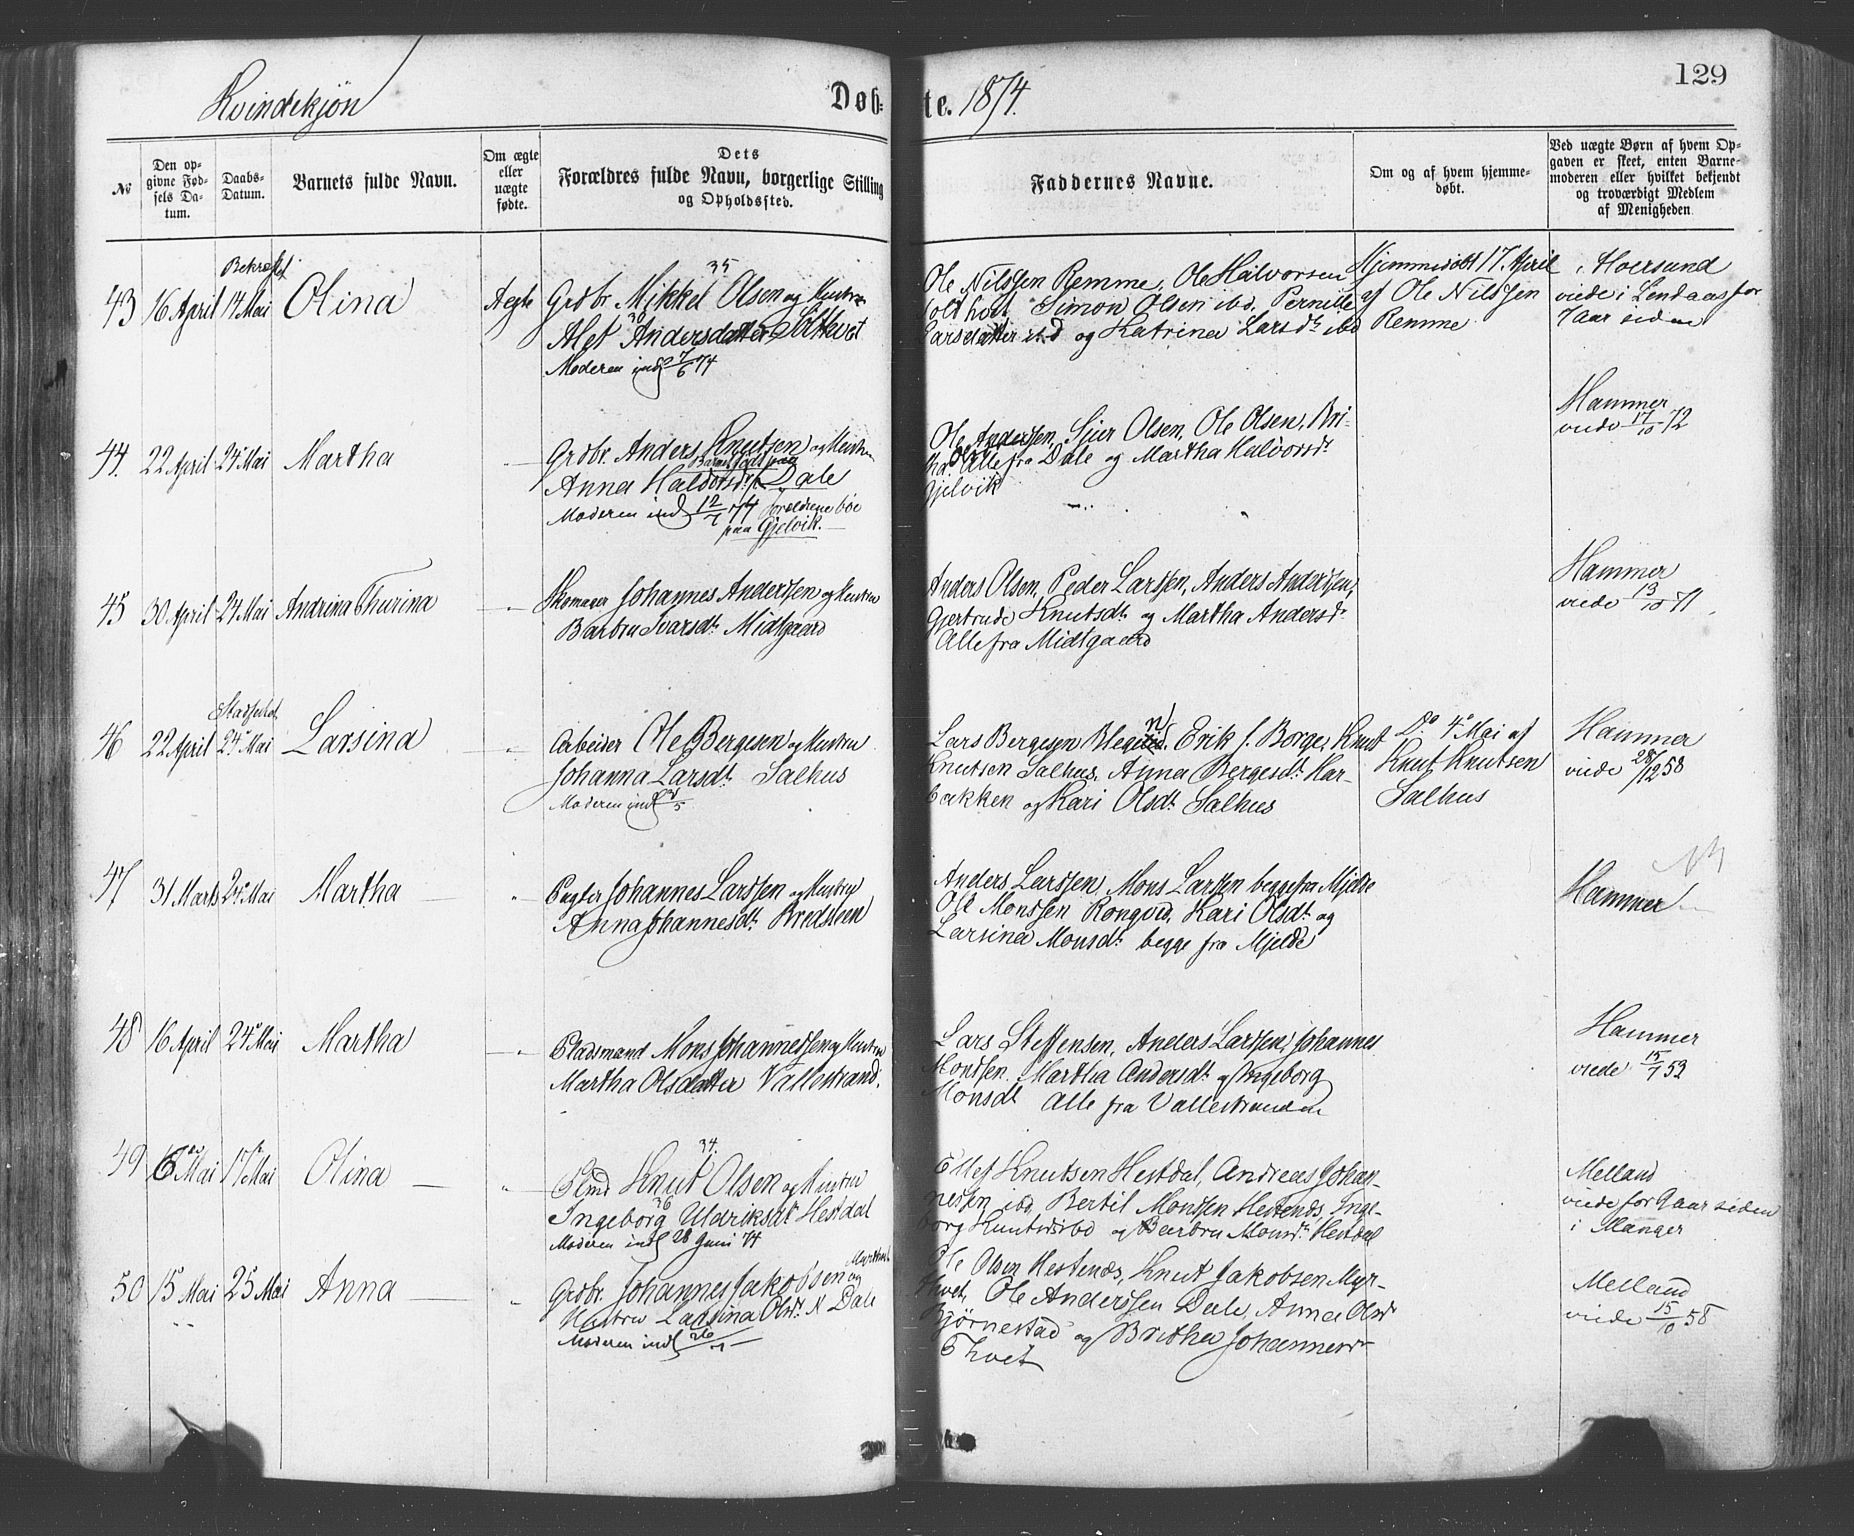 Kvindekjøn
Døb-
te. 1874.
129
№
Den op-
givne Fød-
sels Da-
tum.
Daabs-
Datum.
Barnets fulde Navn.
Om ægte
eller
uægte
fødte.
Dets
Forældres fulde Navn, borgerlige Stilling
og Opholdssted.
Faddernes Navne.
Om og af hvem hjemme-
døbt.
Ved uægte Børn af hvem Op-
gaven er skeet, enten Barne-
moderen eller hvilket bekjendt
og troværdigt Medlem
af Menigheden
43
16 April
Bekræftet
14 Mai
Olina
Aegte
35
Grdbr. Mikkel Olsen og Hustru
30
Alet Andersdatter
Moderen indl 7/6 74
Ole Nilssen Remme, Ole Halvorsen
Simon Olsen ibd, Pernille
Larsdatter ibd og Katrina Larsdt ibd
Hjemmedøbt 17. April
af Ole Nilssen
Remme
viede i Lendaas for
7 Aar siden
44.
22 April
24 Mai
Martha
Grdbr. Anders Knutsen og Hustru
Barnet født paa
Anna Haldorsdt. Dale
Moderen indl 12/7 74 forældrene boe
paa Gjelvik.
Ole Anderssen, Sjur Olsen, Ole Olsen, Bri-
Alle fra Dale og Martha Halvorsdt
Gjelvik
Hammer
viede 17/10 72
45
30 April
24 Mai
Andrina Thurina
Skomager Johannes Anderssen og Hustru
Barbru Ivarsdt. Midtgaard
Anders Olsen, Peder Larssen, Anders Anderssen,
Gjertrude Knutsdt og Martha Andersdt
Alle fra Midtgaard
Hammer
viede 13/10 71
46
22 April
Stadfæstet
24 Mai
Larsina
Arbeider Ole Bergesen og Hustru
Johanna Larsdt. Salhus
Moderen indl
Lars Bergesen Erik s. Borge, Knut
Knutsen Salhus, Anna Bergesdt. Har-
bakken og Kari Olsdt Salhus
Do 4 Mai af
Knut Knutsen
Salhus
Hammer
viede 28/12 58
47
31 Marts
24 Mai
Martha
Pagter Johannes Larssen og Hustru
Anna Johannesdt. Bredsteen
Anders Larssen, Mons Larssen begge fra Mjelde
Ole Monssen Rongved, Kari Olsdt og
Larsina Monsdt begge fra Mjelde
Hammer
48
16 April
24 Mai
Martha
Pladsmand Mons Johannessen og Hustru
Martha Olsdatter Vallestrand.
Lars Steffensen, Anders Larssen, Johannes
Monssen. Martha Andersdt og Ingeborg
Monsdt Alle fra Vallestranden
Hammer
viede 15/7 53
49
6 Mai
17 Mai
Olina
34.
Plmd Knut Olsen og Hustru
36
Ingeborg Uldriksdt Hestdal
Moderen indl 28 Juni 74
Ellef Knutsen Hestdal, Andreas Johan-
nessen ibd, Bertil Monssen Hestenes, Inge-
borg Knutsd ibd og Barbru Monsdt Hestdal
Melland
viede for 9 aar siden
i Manger
50
15 Mai
25 Mai
Anna
Myrthvet
Grdbr. Johannes Jakobsen og
Hustru Larsina Olsdt. N Dale
Moderen indl 26/7
Ole Olsen Hestenæs, Knut Jakobsen Myr-
thvet, Ole Anderssen Dale, Anna Olsdt
Bjørnestad og Britha Johannesdt
Thvet
Melland
viede 15/10 58